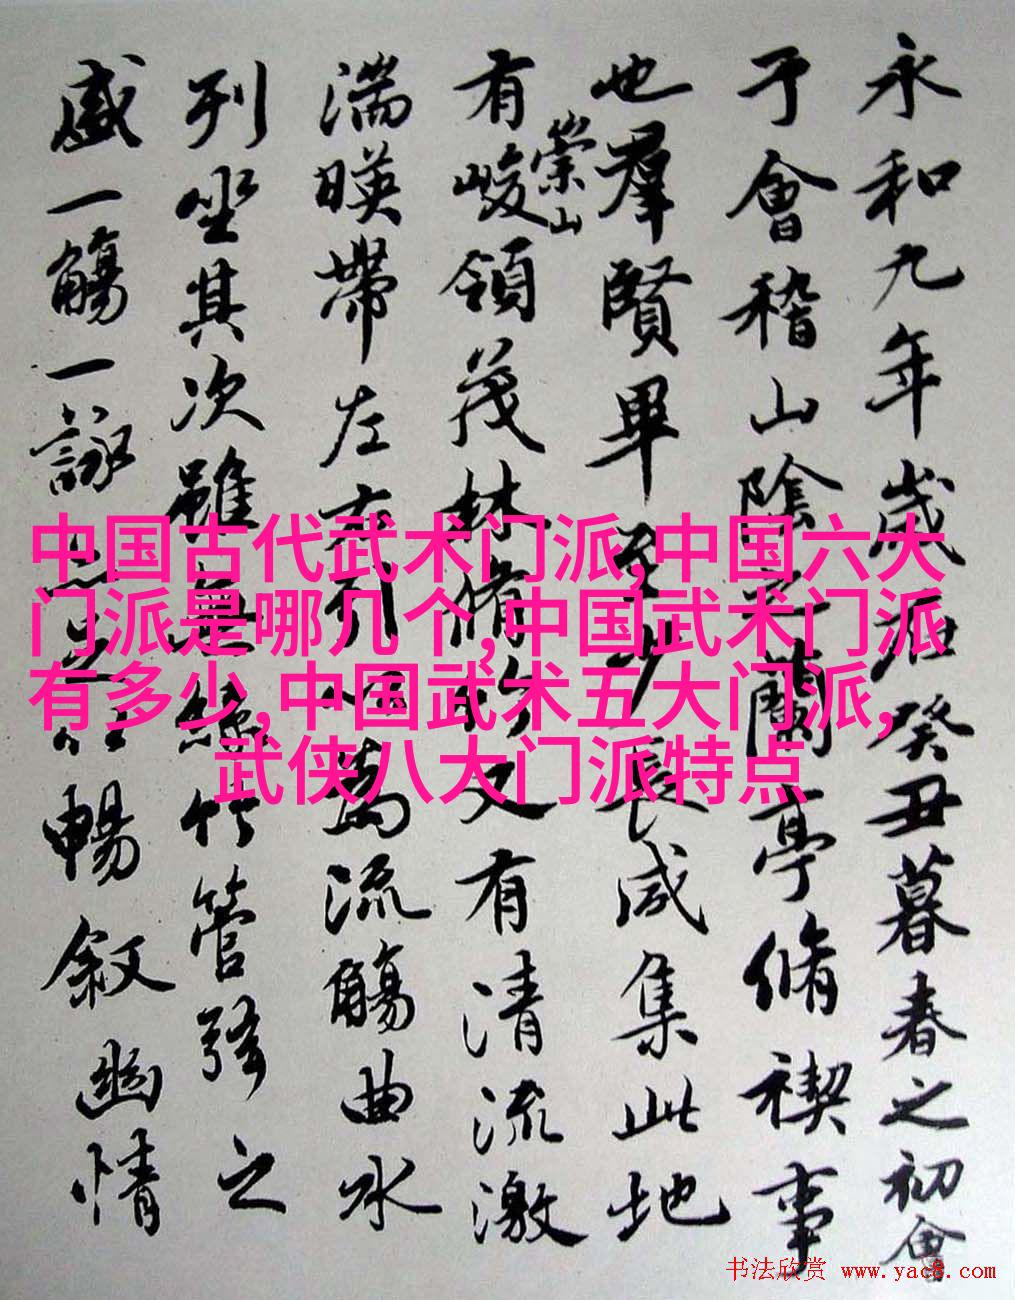 永和九年歲在癸丑暮春之初會
于會稽山陰之蘭亭脩禊事
也羣賢畢至少長咸集此地
有崇山峻領茂林脩竹又有清流激
湍暎帶左右引以為流觴曲水
列坐其次雖無絲竹管弦之
盛一觴一詠亦足以暢敘幽情
中国古代武术门派,中国六大
门派是哪几个,中国武术门派
有多少,中国武术五大门派,
武侠八大门派特点
书法欣赏 www.yac8.com